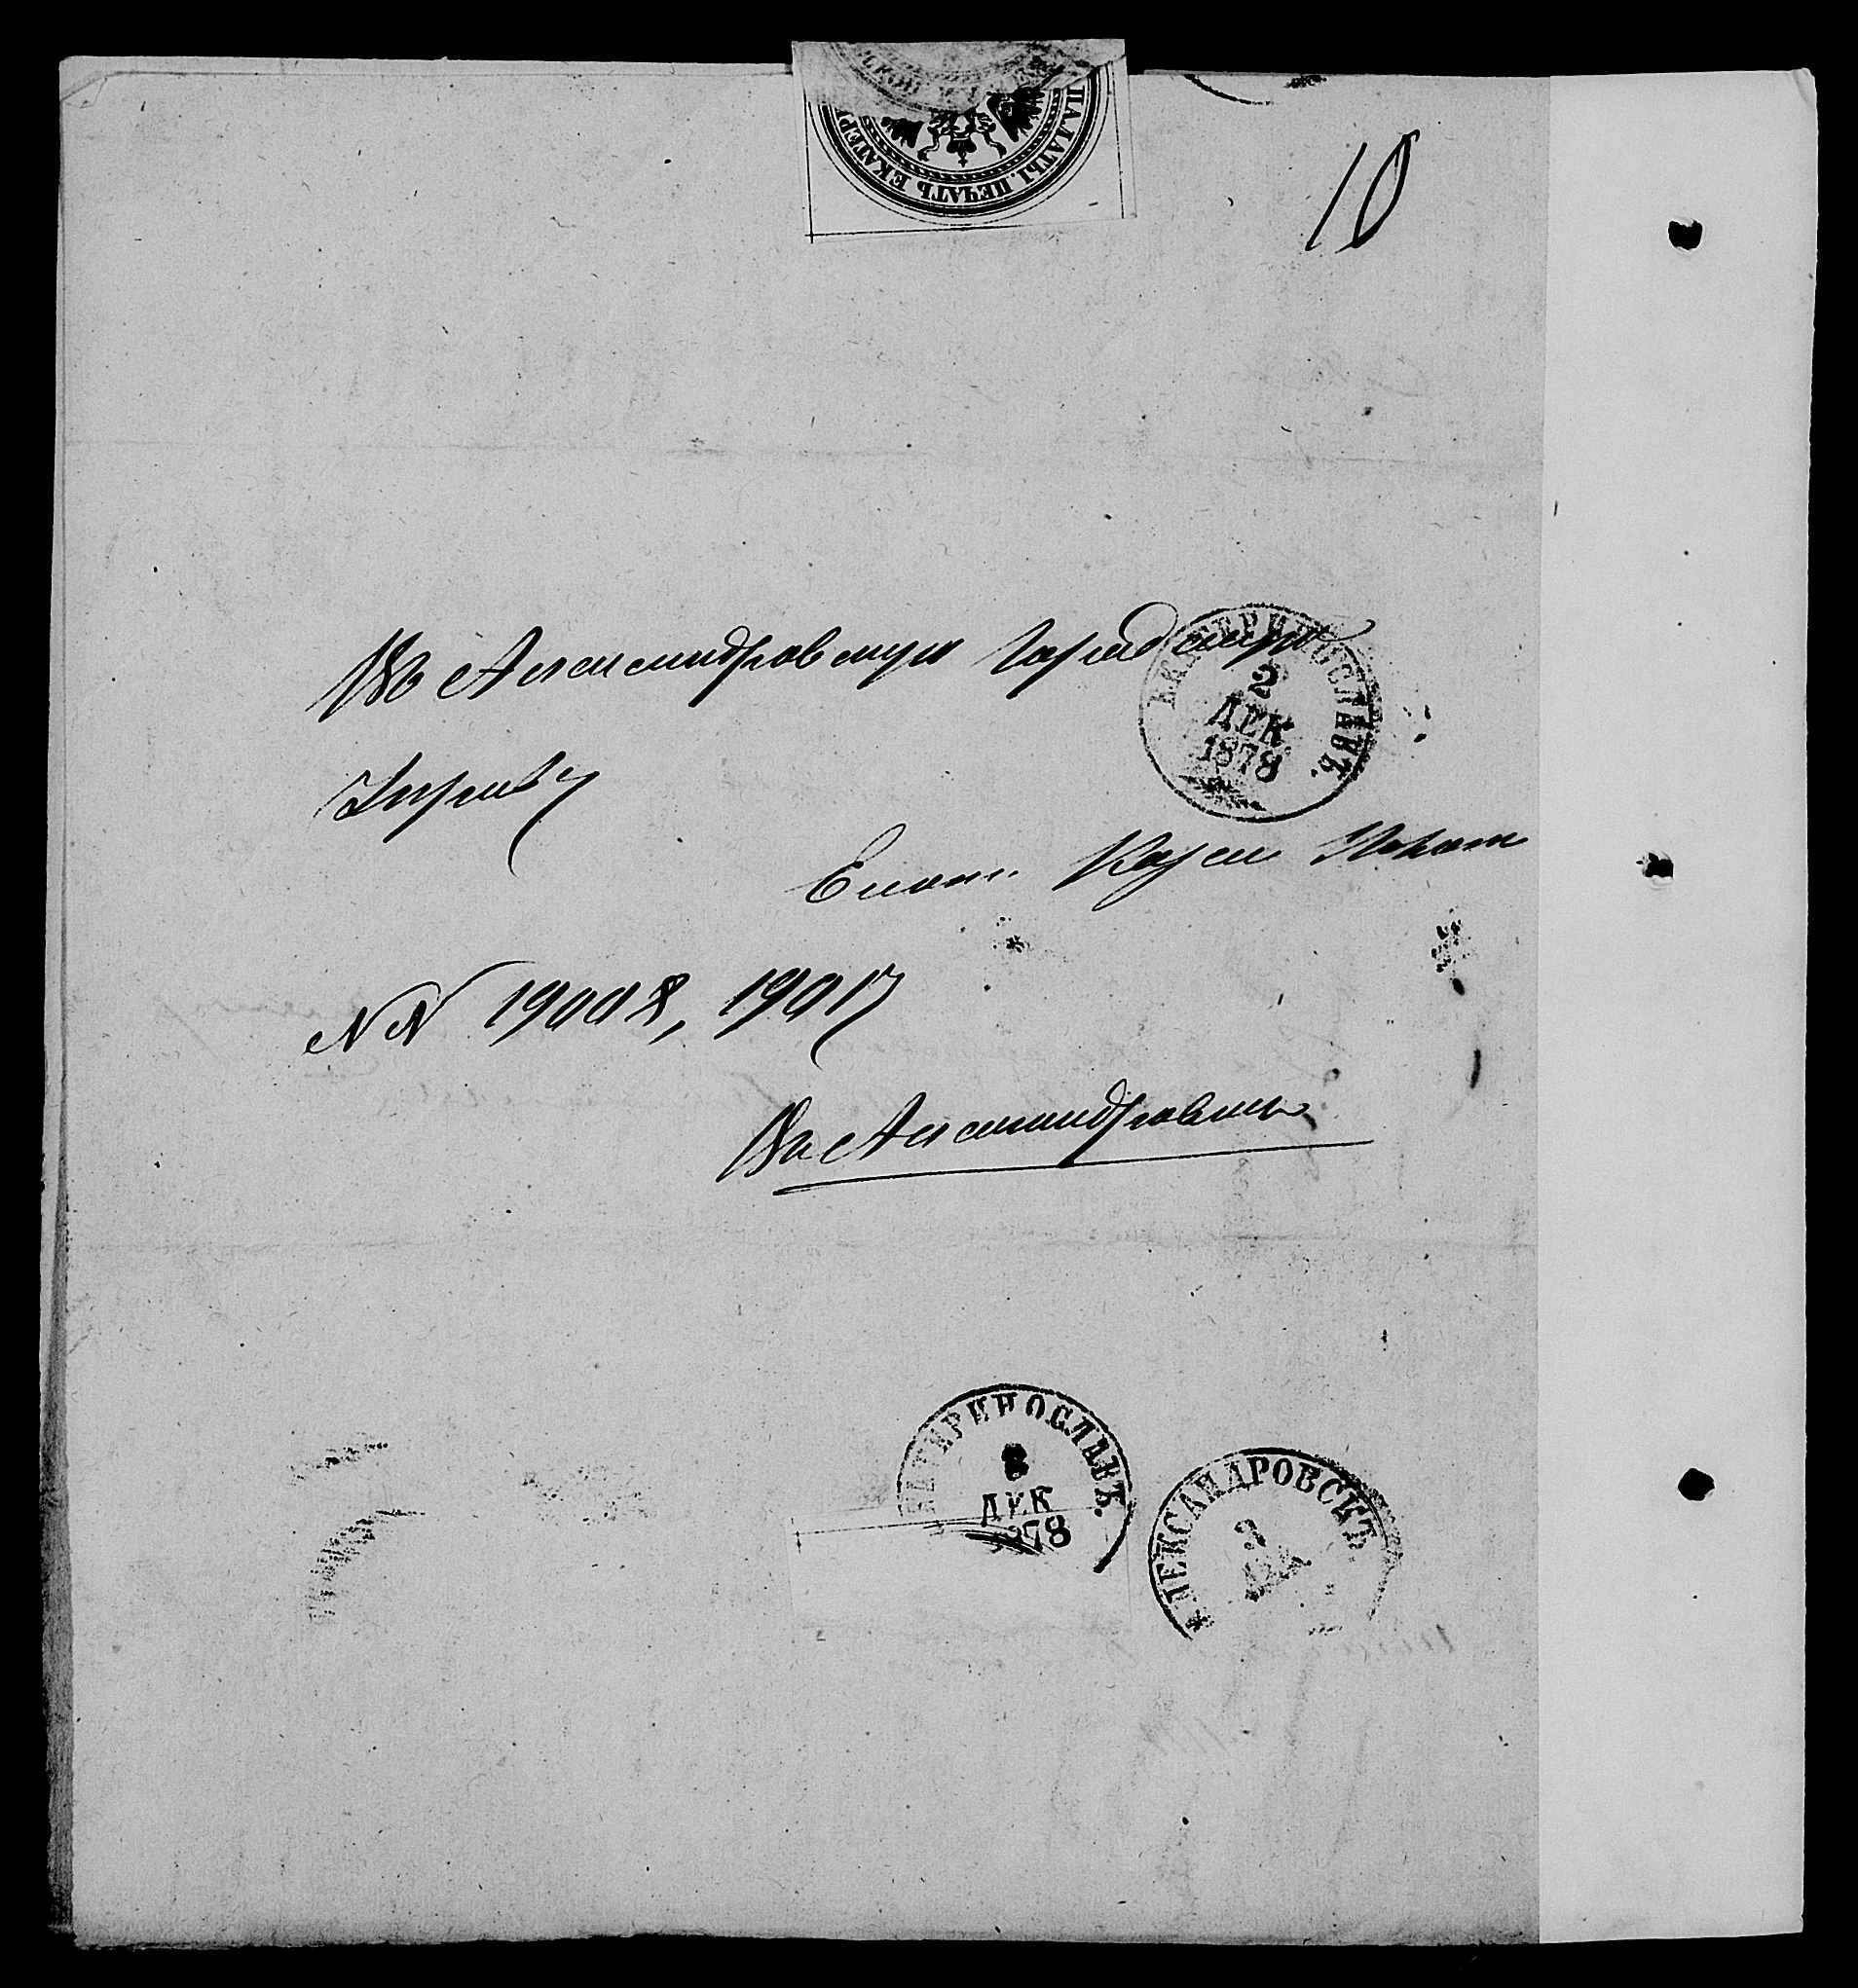 ПАЛАТЫ. ПЕЧАТЬ ЕКАТЕР
10
Въ Александровскую Городскую
Управу
ЕКАТЕРИНОСЛАВЪ.
2
ДЕК
1878
Екат. Казен Палат
NN 19008, 19017
Въ Александровскъ
ЕКАТЕРИНОСЛАВЪ.
3
ДЕК
1878
АЛЕКСАНДРОВСКЪ
3